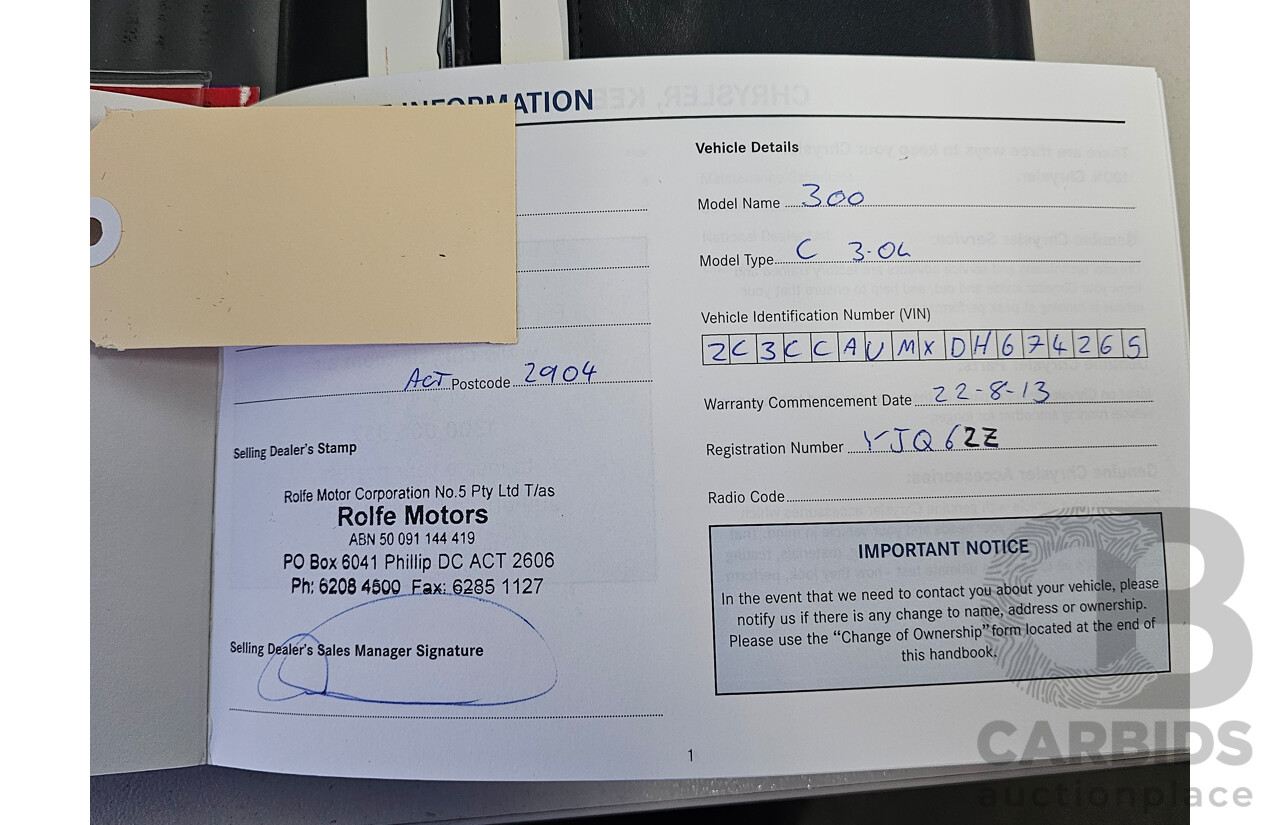 INFORMATION
Vehicle Details
Model Name 300
Model Type C 3.0L
Vehicle Identification Number (VIN)
2C3CCAUMXDH674265
Warranty Commencement Date 22-8-13
Registration Number YJQ62Z
Radio Code
IMPORTANT NOTICE
In the event that we need to contact you about your vehicle, please
notify us if there is any change to name, address or ownership.
Please use the “Change of Ownership” form located at the end of
this handbook.
ACT Postcode 2904
Selling Dealer's Stamp
Rolfe Motor Corporation No.5 Pty Ltd T/as
Rolfe Motors
ABN 50 091 144 419
PO Box 6041 Phillip DC ACT 2606
Ph: 6208 4500 Fax: 6285 1127
Selling Dealer's Sales Manager Signature
1
CARBIDS
auctionplace